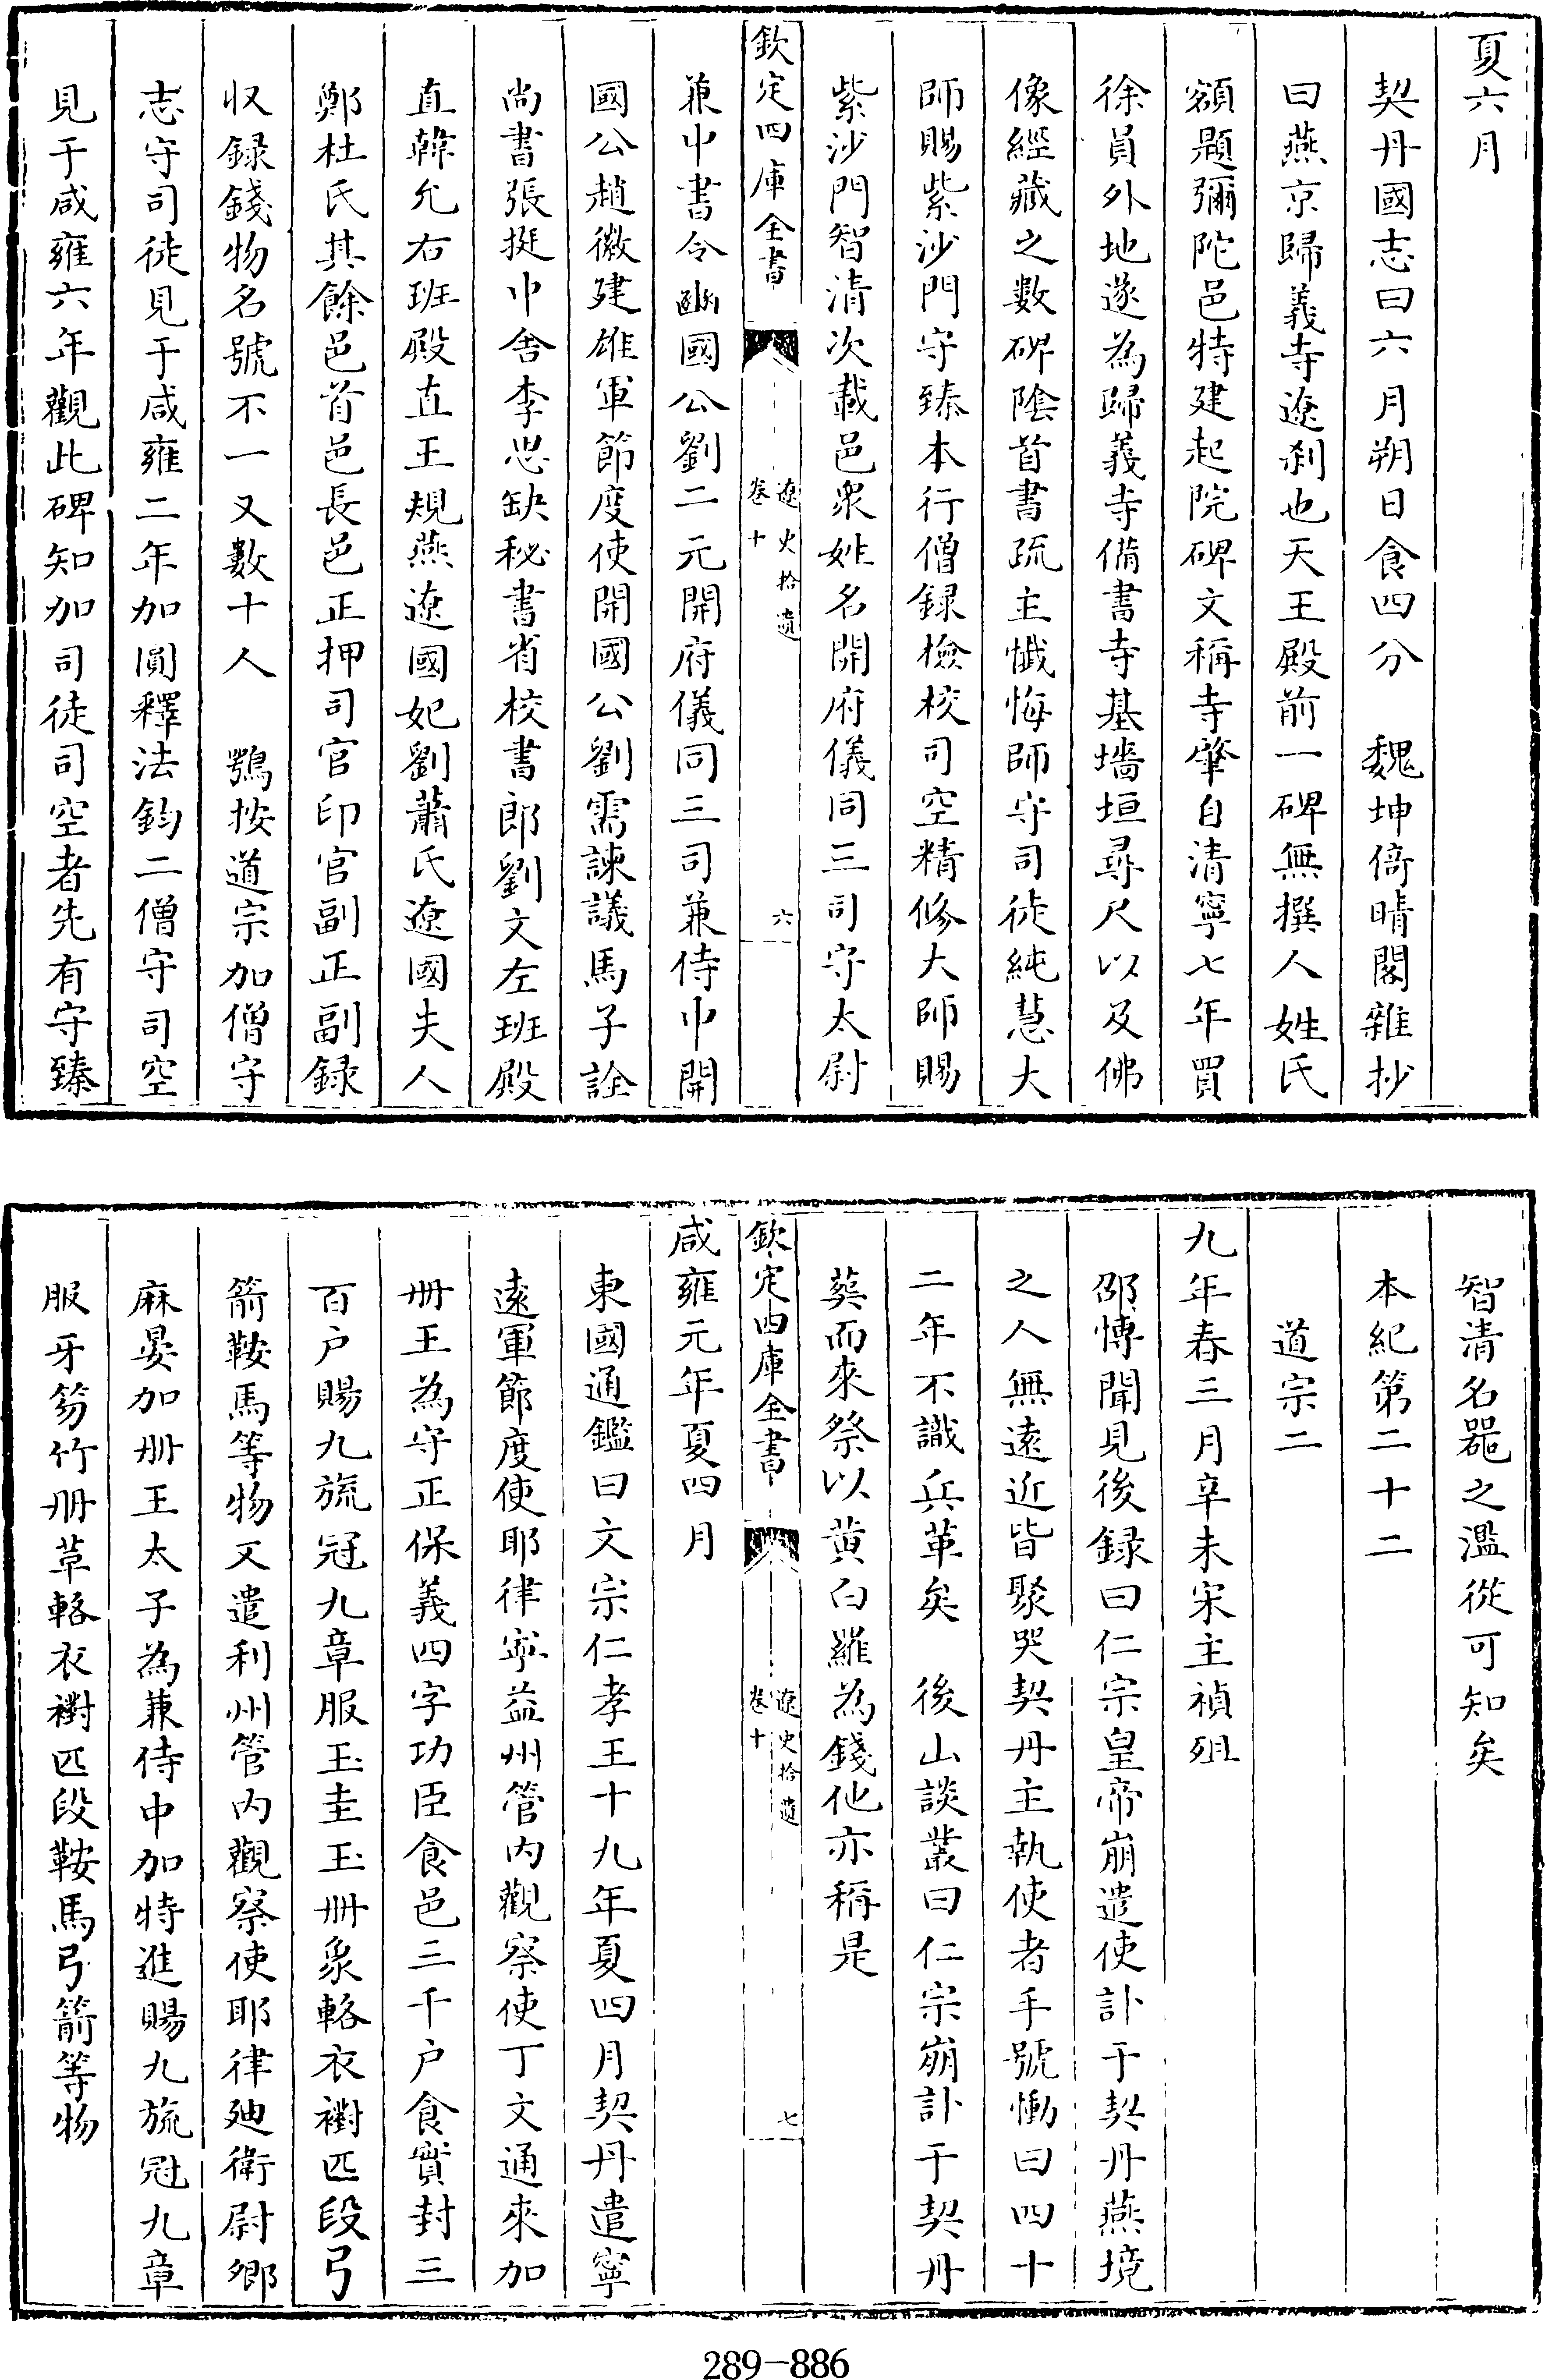 夏六月
契丹國志曰六月朔日食四分　魏坤倚晴閣雜抄
曰燕京歸義寺遼刹也天王殿前一碑無撰人姓氏
額題彌陀邑特建起院碑文稱寺肇自清寧七年買
徐員外地遂為歸義寺備書寺基墻垣尋尺以及佛
像經藏之數碑陰首書疏主懺悔師守司徒純慧大
師賜紫沙門守臻本行僧録檢校司空精修大師賜
紫沙門智清次載邑衆姓名開府儀同三司守太尉
欽定四庫全書
遼史拾遺
卷十
六
兼中書令豳國公劉二元開府儀同三司兼侍中開
國公趙徽建雄軍節度使開國公劉需諫議馬子詮
尚書張挺中舍李思缺秘書省校書郎劉文左班殿
直韓允右班殿直王規燕遼國妃劉蕭氏遼國夫人
鄭杜氏其餘邑首邑長邑正押司官印官副正副録
收録錢物名號不一又數十人　鶚按道宗加僧守
志守司徒見于咸雍二年加圓釋法鈞二僧守司空
見于咸雍六年觀此碑知加司徒司空者先有守臻
智清名器之濫從可知矣
本紀第二十二
道宗二
九年春三月辛未宋主禎殂
邵博聞見後録曰仁宗皇帝崩遣使訃于契丹燕境
之人無遠近皆聚哭契丹主執使者手號慟曰四十
二年不識兵革矣　後山談叢曰仁宗崩訃于契丹
葬而來祭以黃白羅為錢他亦稱是
欽定四庫全書
遼史拾遺
卷十
七
咸雍元年夏四月
東國通鑑曰文宗仁孝王十九年夏四月契丹遣寧
遠軍節度使耶律寧益州管内觀察使丁文通來加
册王為守正保義四字功臣食邑三千户食實封三
百户賜九旒冠九章服玉圭玉册象輅衣襨匹段弓
箭鞍馬等物又遣利州管内觀察使耶律迪衛尉卿
麻晏加册王太子為兼侍中加特進賜九旒冠九章
服牙笏竹册革輅衣襨匹段鞍馬弓箭等物
289-886